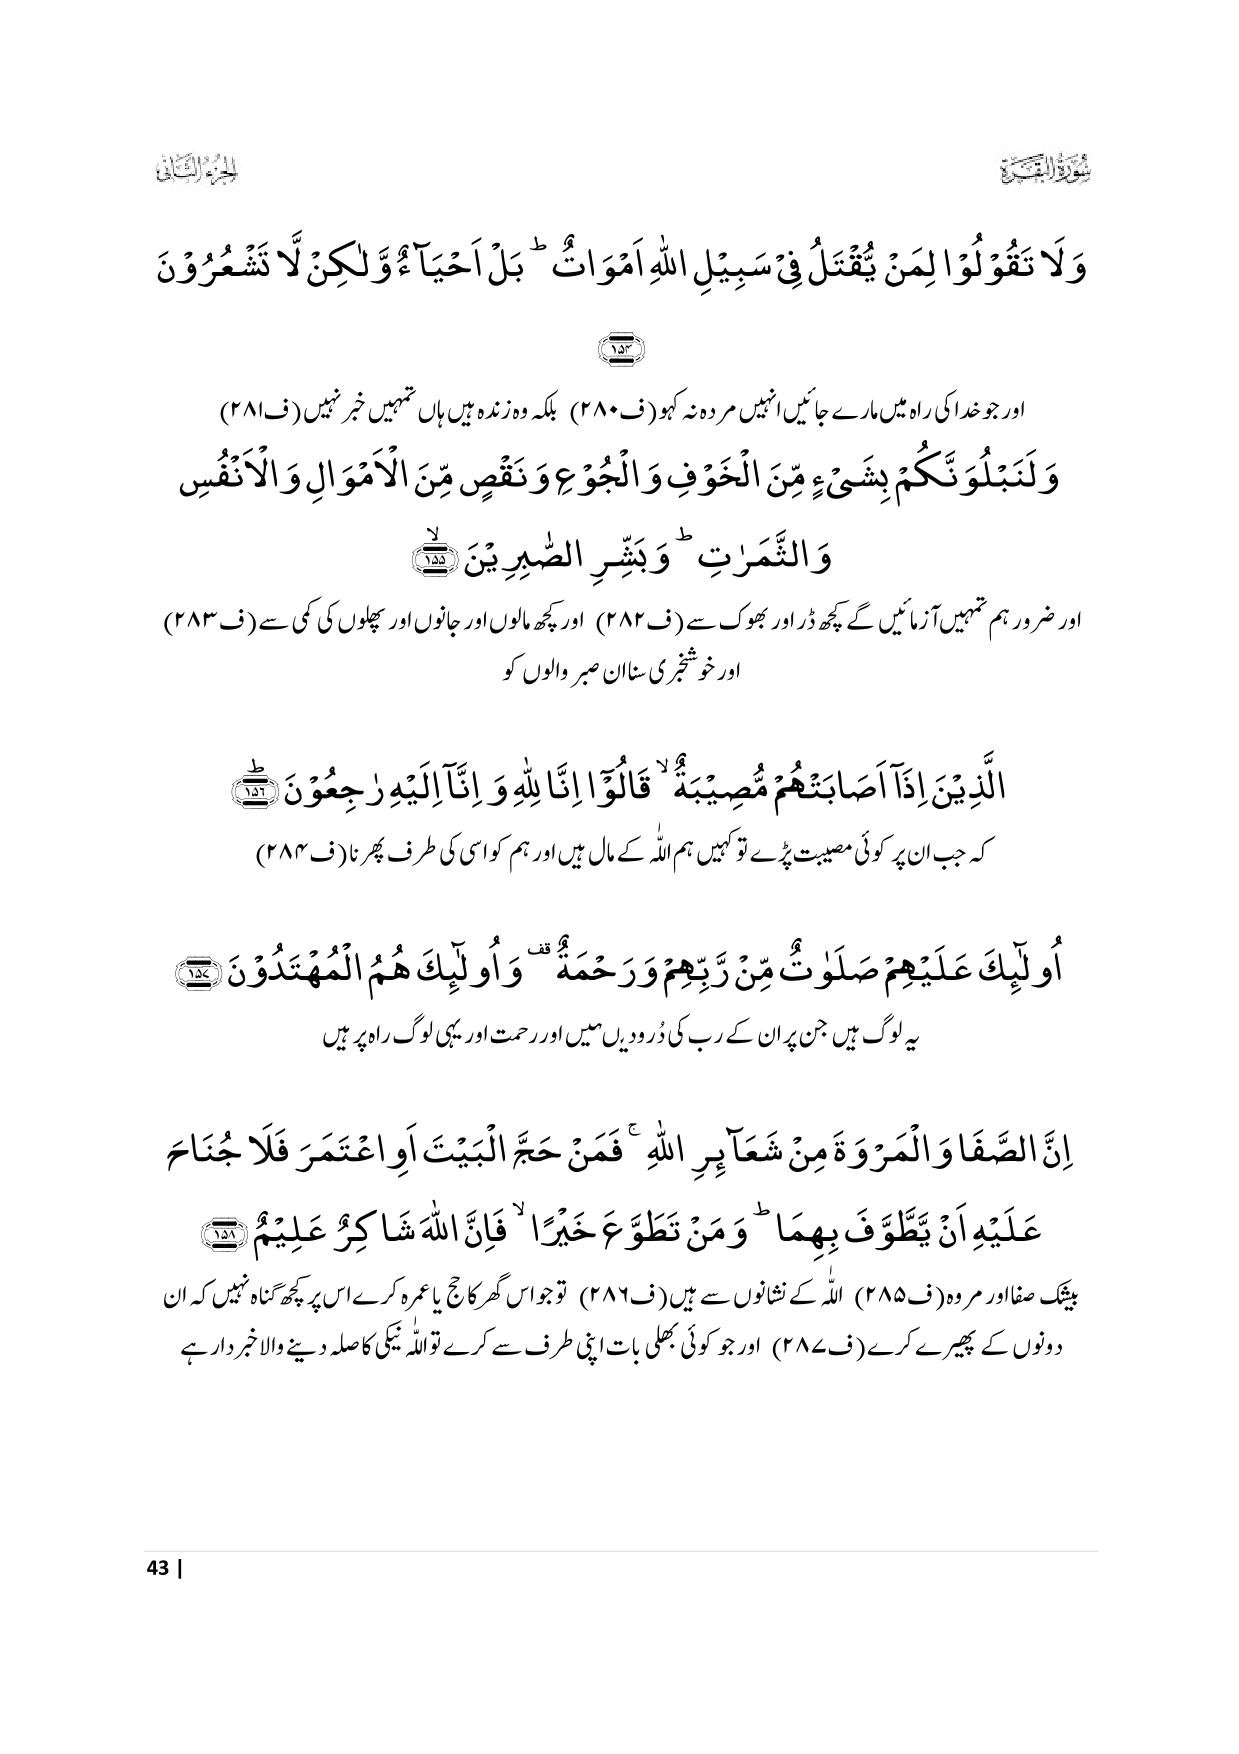 سُوْرَةُ الْبَقَرَة
الجزء الثانی
وَلَا تَقُوْلُوْا لِمَنْ یُّقْتَلُ فِیْ سَبِیْلِ اللّٰهِ اَمْوَاتٌؕ بَلْ اَحْیَآءٌ وَّلٰكِنْ لَّا تَشْعُرُوْنَ
﴿۱۵۴﴾
اور جو خدا کی راہ میں مارے جائیں انہیں مردہ نہ کہو (ف۲۸۰) بلکہ وہ زندہ ہیں ہاں تمہیں خبر نہیں (ف۲۸۱)
وَلَنَبْلُوَنَّكُمْ بِشَیْءٍ مِّنَ الْخَوْفِ وَالْجُوْعِ وَنَقْصٍ مِّنَ الْاَمْوَالِ وَالْاَنْفُسِ
وَالثَّمَرٰتِؕ وَبَشِّرِ الصّٰبِرِیْنَ ﴿۱۵۵﴾ۙ
اور ضرور ہم تمہیں آزمائیں گے کچھ ڈر اور بھوک سے (ف۲۸۲) اور کچھ مالوں اور جانوں اور پھلوں کی کمی سے (ف۲۸۳)
اور خوشخبری سنا ان صبر والوں کو
الَّذِیْنَ اِذَاۤ اَصَابَتْهُمْ مُّصِیْبَةٌۙ قَالُوْۤا اِنَّا لِلّٰهِ وَ اِنَّاۤ اِلَیْهِ رٰجِعُوْنَ ﴿۱۵۶﴾ؕ
کہ جب ان پر کوئی مصیبت پڑے تو کہیں ہم اللّٰہ کے مال ہیں اور ہم کو اسی کی طرف پھرنا (ف۲۸۴)
اُولٰٓئِكَ عَلَیْهِمْ صَلَوٰتٌ مِّنْ رَّبِّهِمْ وَرَحْمَةٌ قف وَاُولٰٓئِكَ هُمُ الْمُهْتَدُوْنَ ﴿۱۵۷﴾
یہ لوگ ہیں جن پر ان کے رب کی دُرودیں ہیں اور رحمت اور یہی لوگ راہ پر ہیں
اِنَّ الصَّفَا وَالْمَرْوَةَ مِنْ شَعَآئِرِ اللّٰهِۚ فَمَنْ حَجَّ الْبَیْتَ اَوِ اعْتَمَرَ فَلَا جُنَاحَ
عَلَیْهِ اَنْ یَّطَّوَّفَ بِهِمَاؕ وَمَنْ تَطَوَّعَ خَیْرًاۙ فَاِنَّ اللّٰهَ شَاكِرٌ عَلِیْمٌ ﴿۱۵۸﴾
بیشک صفا اور مروہ (ف۲۸۵) اللّٰہ کے نشانوں سے ہیں (ف۲۸۶) تو جو اس گھر کا حج یا عمرہ کرے اس پر کچھ گناہ نہیں کہ ان
دونوں کے پھیرے کرے (ف۲۸۷) اور جو کوئی بھلی بات اپنی طرف سے کرے تو اللّٰہ نیکی کا صلہ دینے والا خبردار ہے
43 |